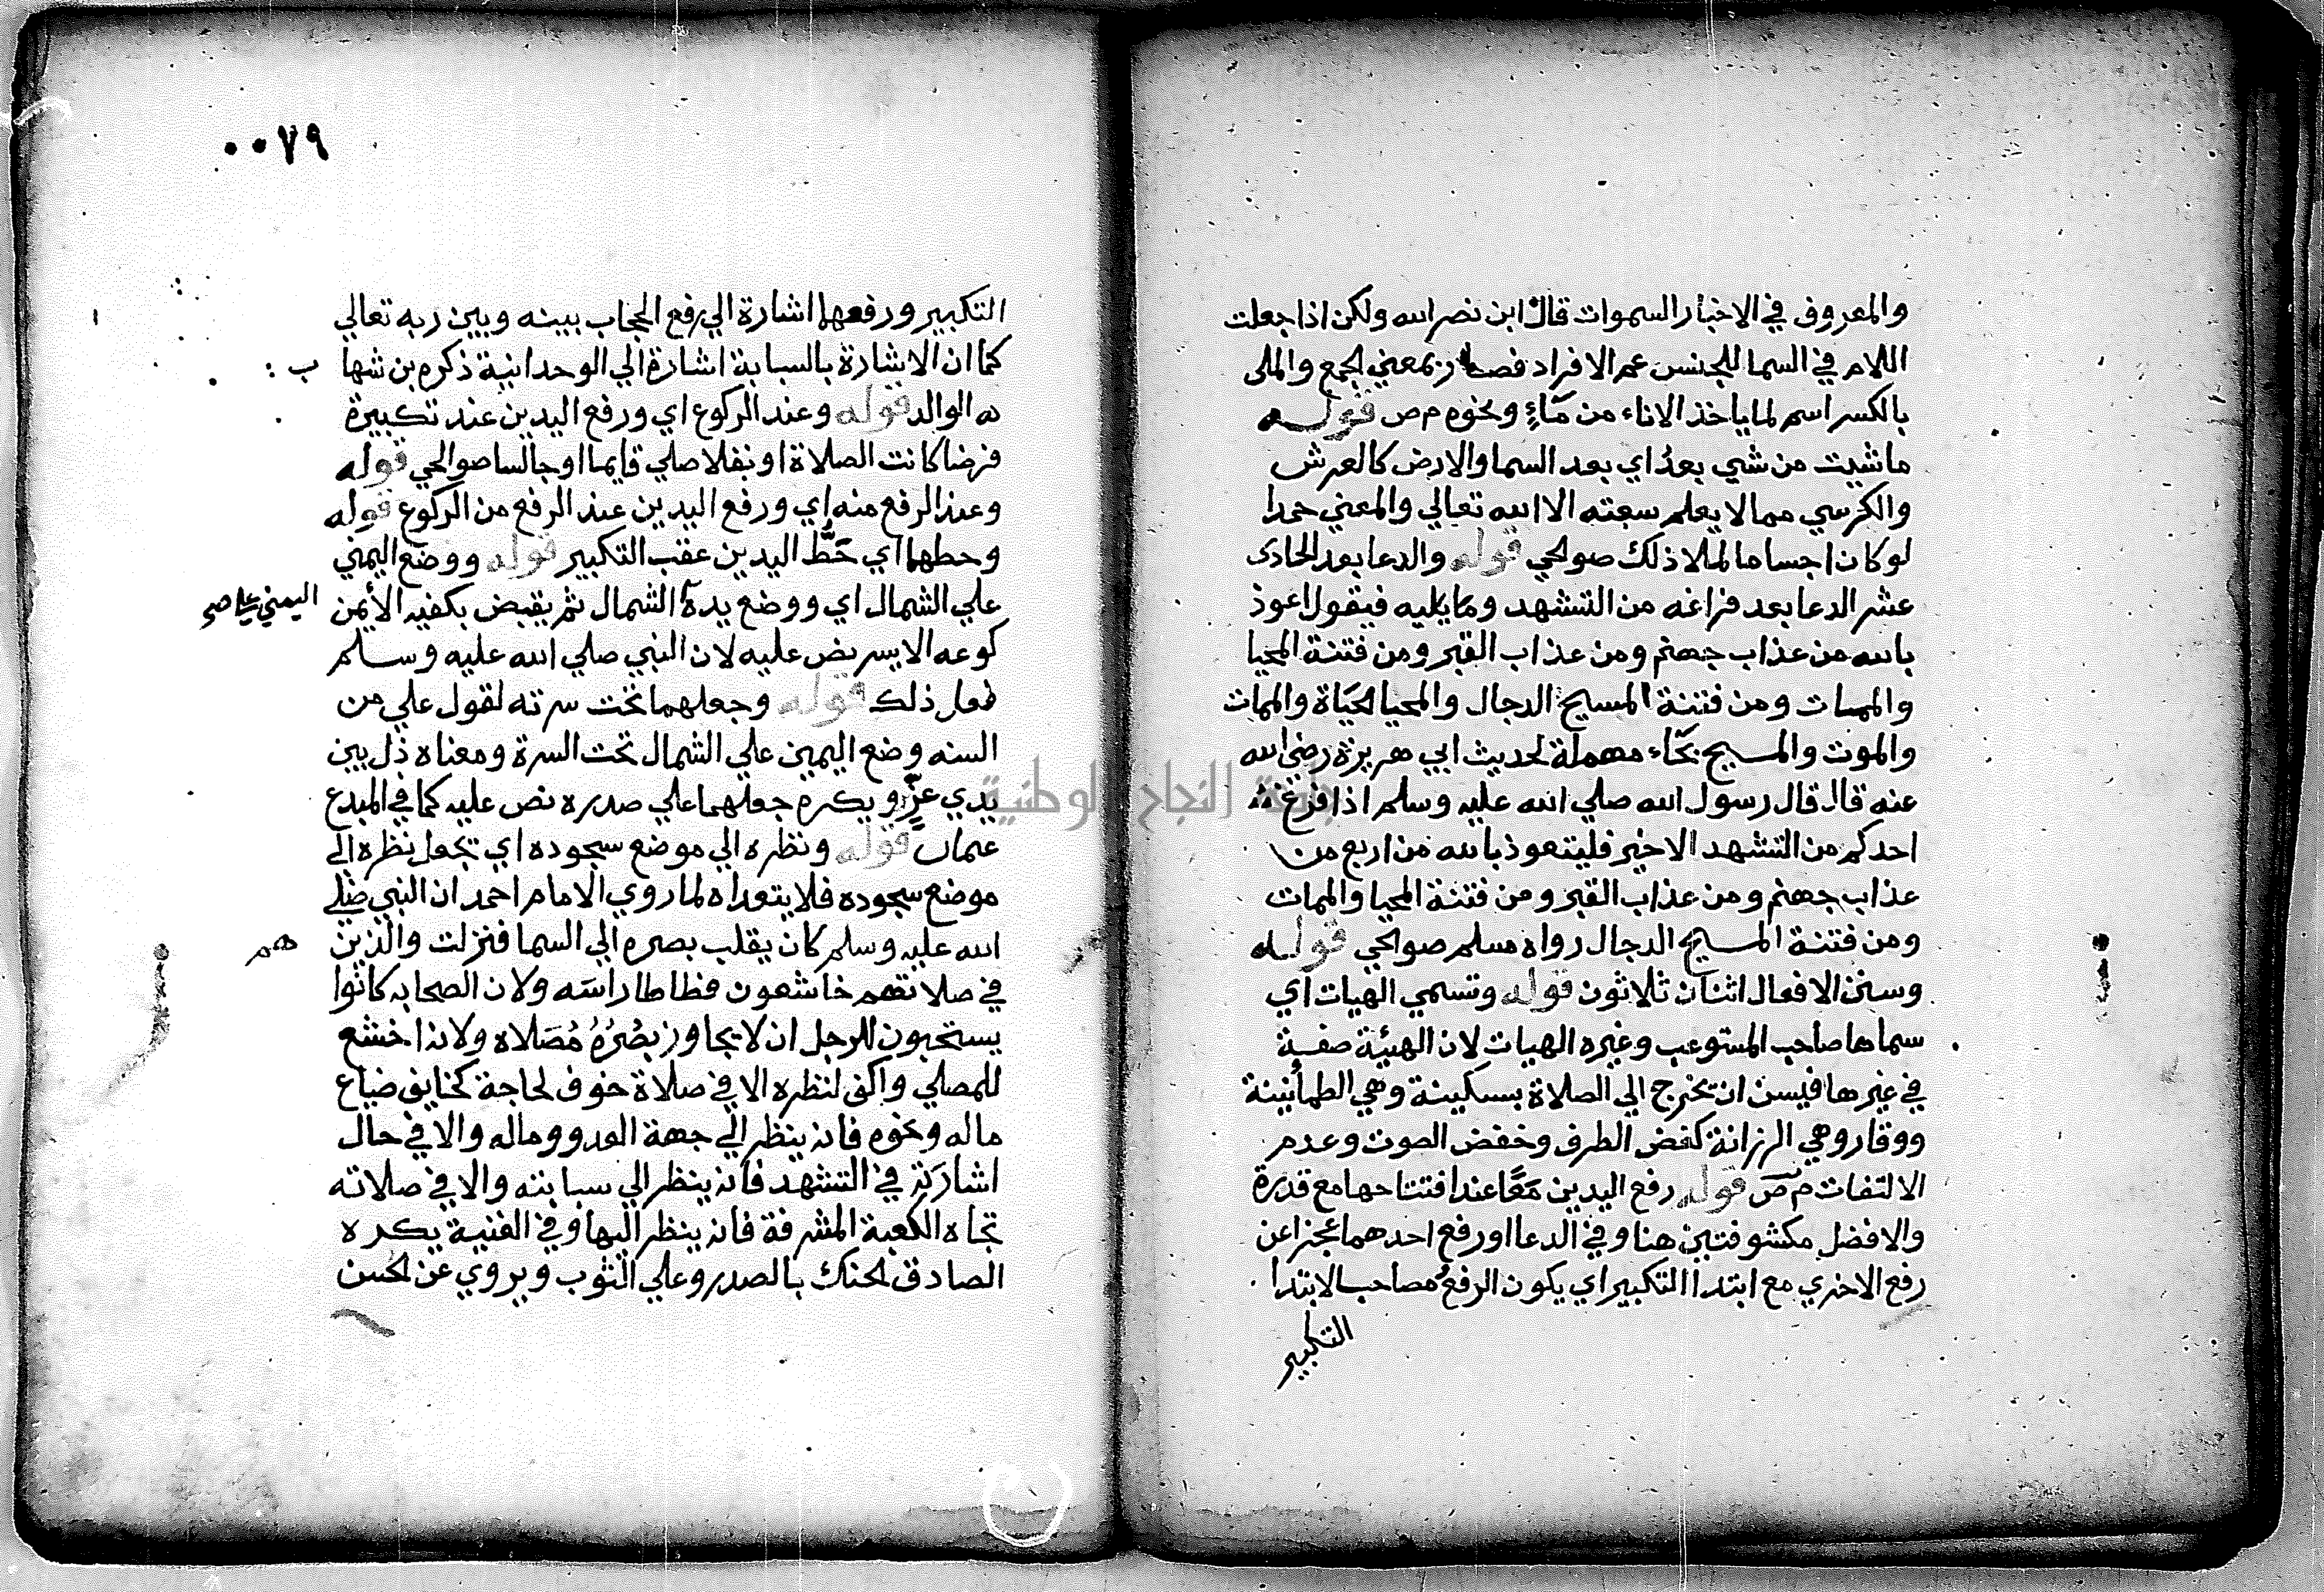 والمعروف في الاخبار السموات قال ابن نصر الله ولكن اذا جعلت
اللام في السما للجنس عم الافراد فصار بمعني الجمع والملي
بالكسر اسم لما ياخذ الاناء من مّاءٍ ونحوه م ص قوله
ماشيت من شي بعدُ اي بعد السما والارض كالعرش
والكرسي مما لا يعلم سعته الا الله تعالي والمعني حمدا
لو كان اجساما لملا ذلك صوالحي قوله والدعا بعد الحادي
عشر الدعا بعد فراغه من التشهد وما يليه فيقول اعوذ
بالله من عذاب جهنم ومن عذاب القبر ومن فتنة المحيا
والممات ومن فتنة المسيح الدجال والمحيا الحيَاة والممات
والموت والمسيح بحّاء مهملة لحديث ابي هريرة رضي الله
عنه قال قال رسول الله صلي الله عليه وسلم اذا فرغ
احدكم من التشهد الاخير فليتعوذ بالله من اربع من
عذاب جهنم ومن عذاب القبر ومن فتنة المحيا والممات
ومن فتنة المسيح الدجال رواه مسلم صوالحي قوله
وسنن الافعال اثنان ثلاثون قوله وتسمي الهيات اي
سماها صاحب المستوعب وغيره الهيات لان الهيئة صفة
في غيرها فيسن ان تخرج الي الصلاة بسكينة وهي الطمأنينة
ووقار وهي الرزانة كغض الطرف وخفض الصوت وعدم
الالتفات م ص قوله رفع اليدين مَعًا عند افتتاحها مع قدرة
والافضل مكشوفتين هنا وفي الدعا او رفع احدهما عجزا عن
رفع الاخري مع ابتدا التكبير اي يكون الرفعُ مصاحب الابتدا
التكبير
٠٠٧٩
التكبير ورفعهما اشارة الي رفع الحجاب بينه وبين ربه تعالي
كما ان الاشارة بالسبابة اشارة الي الوحدانية ذكره بن شها ب
ده الوالد قوله وعند الركوع اي ورفع اليدين عند تكبيرة
فرضا كانت الصلاة او نفلا صلي قايما او جالسا صوالحي قوله
وعند الرفع منه اي ورفع اليدين عند الرفع من الركوع قوله
وحطهما اي حَطُّ اليدين عقب التكبير قوله ووضع اليمني
علي الشمال اي ووضع يده الشمال ثم يقبض بكفيه الأيمن
اليمني علي صح
كوعه الايسر نص عليه لان النبي صلي الله عليه وسلم
فعل ذلك قوله وجعلهما تحت سرته لقول علي من
السنه وضع اليمين علي الشمال تحت السرة ومعناه ذل بين
يدي عزٍّ ويكره جعلهما علي صدره نص عليه كما في المبدع
عثمان قوله ونظره الي موضع سجوده اي يجعل نظره الي
موضع سجوده فلا يتعداه لما روي الامام احمد ان النبي صلي
الله عليه وسلم كان يقلب بصره الي السما فنزلت والذين هم
في صلاتهم خاشعون فطاطا راسَه ولان الصحابه كانوا
يستحبون للرجل ان لا يجاوز بصَرُهُ مُصَلاه ولانه اخشع
للمصلي واكف لنظره الا في صلاة خوف لحاجة كخايف ضياع
ماله ونحوه فانه ينظر الي جهة العدو وماله والا في حال
اشارته في التشهد فانه ينظر الي سبابته والا في صلاته
تجاه الكعبة المشرفة فانه ينظر اليها وفي الغنية يكره
الصادق الحنك بالصدر وعلي الثوب ويروي عن الحسن
جامعة النجاح الوطنية